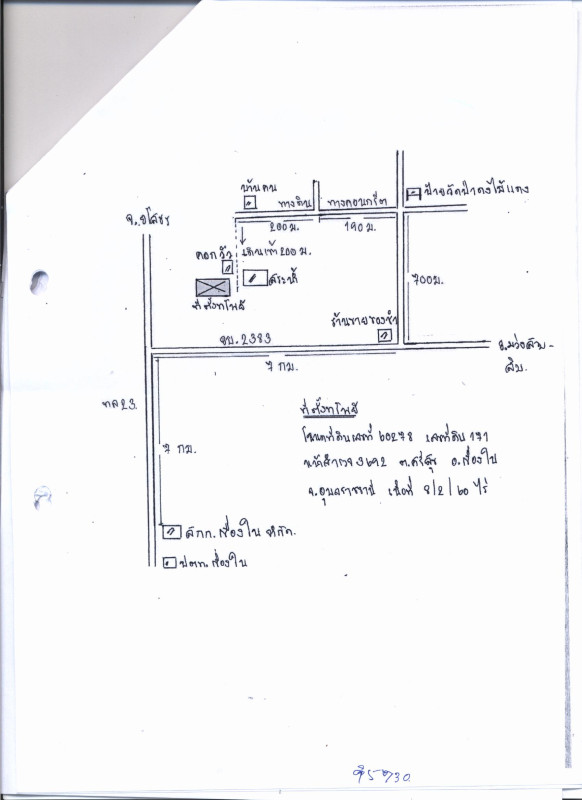 บ้านคน
ทางดิน
ทางคอนกรีต
ป้ายวัดป่าดงไม้แดง
จ.ยโสธร
200 ม.
190 ม.
คอกวัว
เดินเข้า 200 ม.
สระน้ำ
ที่ตั้งทรัพย์
700 ม.
ร้านขายของชำ
อบ. 2383
7 กม.
อ.ม่วงสาม-
สิบ.
ทล 23.
7 กม.
ที่ตั้งทรัพย์
โฉนดที่ดินเลขที่ 60278 เลขที่ดิน 171
หน้าสำรวจ 3692 ต.ศรีสุข อ.เขื่องใน
จ.อุบลราชธานี เนื้อที่ 8/2/60 ไร่
สกก.เขื่องใน จำกัด.
ปตท.เขื่องใน